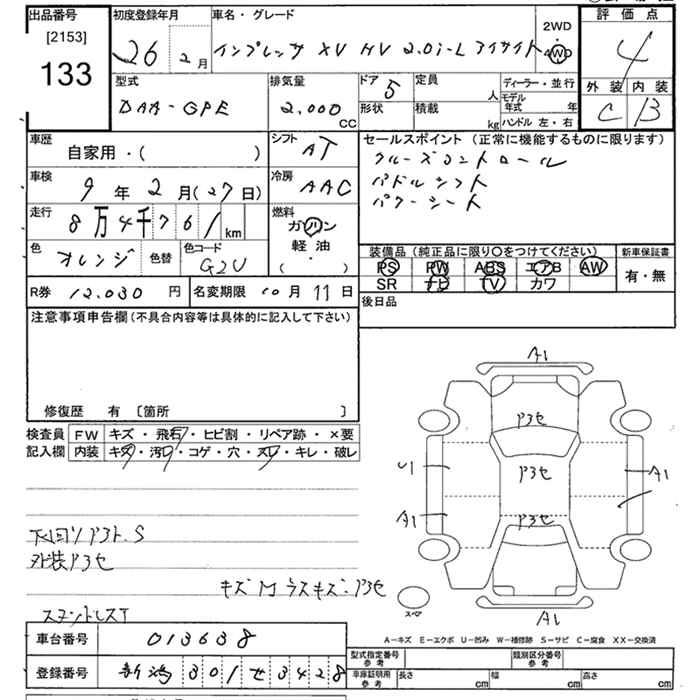 出品番号 初度登録年月 車名・グレード 2WD 評価点
[2153] 26年 2月 インプレッサ XV HV 2.0i-L アイサイト 4WD 4
133 外装 内装
C B
型式 排気量 ドア 5 定員 人 ディーラー・並行
DAA-GPE 2,000 CC 形状 積載 kg モデル年式 年
ハンドル 左・右
車歴 シフト セールスポイント (正常に機能するものに限ります)
自家用・( ) AT クルーズコントロール
車検 冷房 パドルシフト
9年 2月(27日) AAC パワーシート
走行 8万4千761 km 燃料 ガソリン
軽油・
( )
色 オレンジ 色替 色コード G2U
装備品(純正品に限り○をつけてください) 新車保証書
PS PW ABS エアB AW 有・無
SR ナビ TV カワ
R券 12,030 円 名変期限 10月 11日 後日品
注意事項申告欄(不具合内容等は具体的に記入して下さい)
修復歴 有 〔箇所 〕
検査員 FW キズ・飛石・ヒビ割・リペア跡・×要
記入欄 内装 キズ・汚れ・コゲ・穴・スレ・キレ・破レ
A1
P3セ
U1 P3セ A1
A1 P3セ
A1
スペア
下回りP3ト.S
外装P3セ
キズ M ウスキズ・P3セ
A-キズ E-エクボ U-凹み W-補修跡 S-サビ C-腐食 XX-交換済
車台番号 013638
登録番号 新潟 301 せ 3428
型式指定番号 参考 類別区分番号 参考
車庫証明用 参考 長さ cm 幅 cm 高さ cm